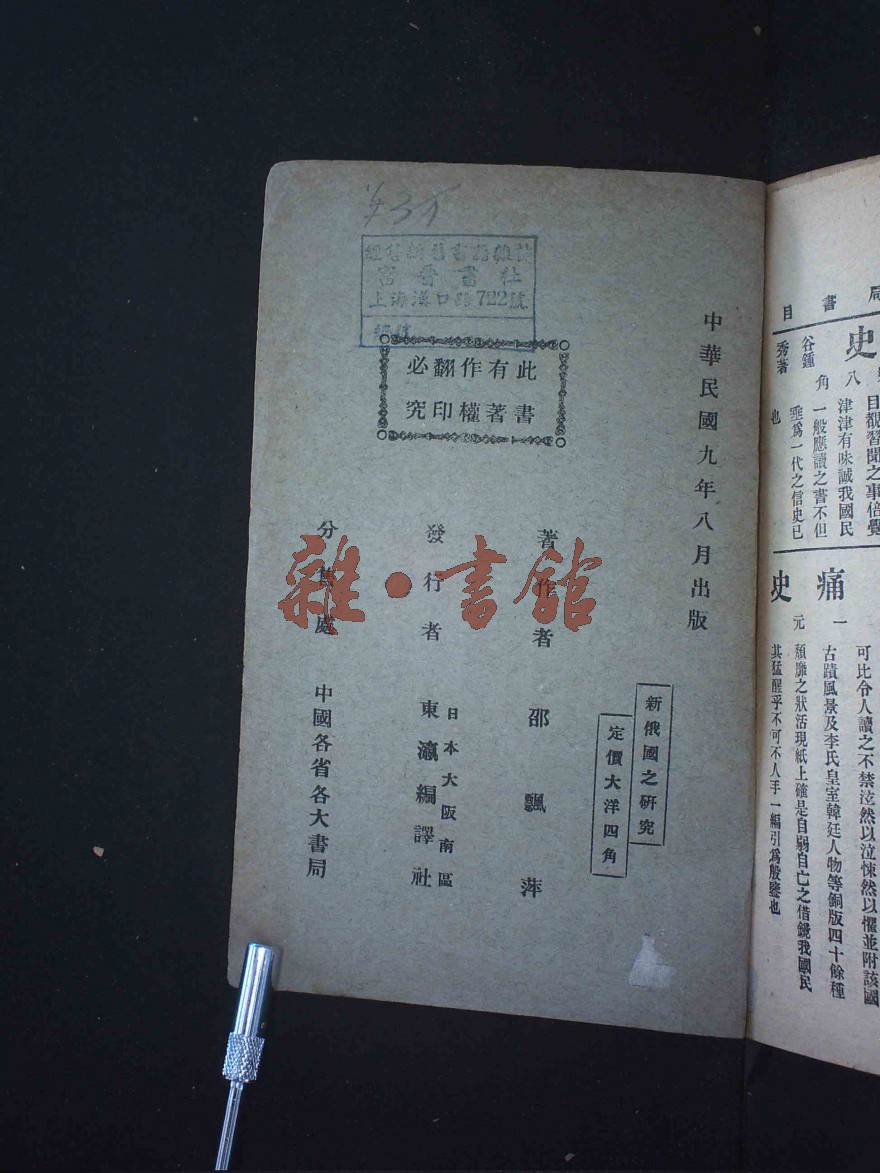 局書目
史
八角
谷鍾秀著
目覩習聞之事倍覺
津津有味誠我國民
一般應讀之書不但
垂爲一代之信史已
也
痛史
一元
可比令人讀之不禁泫然以泣悚然以懼並附該國
古蹟風景及李氏皇室韓廷人物等銅版四十餘種
頹靡之狀活現紙上確是自弱自亡之借鏡我國民
其猛醒乎不可不人手一編引爲殷鑒也
中華民國九年八月出版
新俄國之硏究
定價大洋四角
此書有著作權翻印必究
著作者 邵飄萍
日本大阪南區
發行者 東瀛編譯社
分售處 中國各省各大書局
經售新舊書籍雜誌
富晉書社
上海漢口路722號
編號
雜·書館